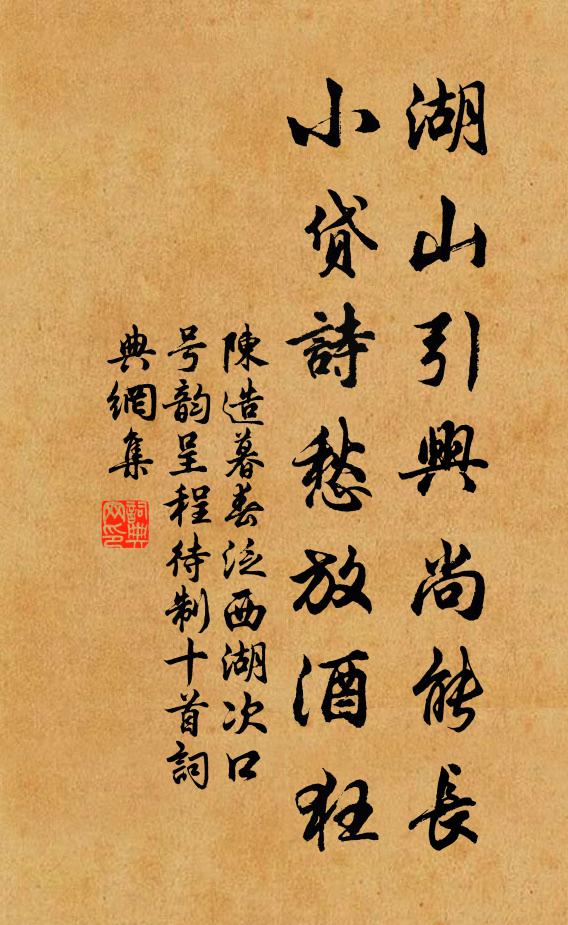 湖山引興尚能長
小貸詩愁放酒狂
陳造暮春泛西湖次口
号韵呈程待制十首詞
典網集
詞典
网印